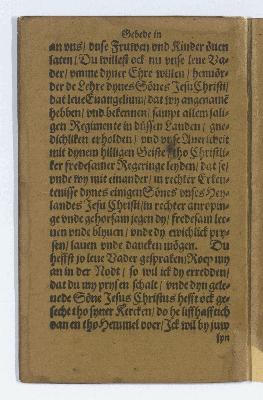 Gebede in
an vns / vnse Fruwen vnd Kinder öuen
laten / Du willest ock nu vnse leue Va-
der / vmme dyner Ehre willen / hentör-
der de Lehre dynes Sönes Jesu Christi /
dat leue Euangelium / dat wy angenamē
hebben / vnd bekennen / sampt allem sali-
gen Regimente in düssen Landen / gne-
dichliken erholden / vnd vnse Auericheit
mit dynem hilligen Geiste tho Christli-
ker fredesamer Regeringe leyden / dat se /
vnde wy mit einander / in rechter Erken-
tenisse dynes einigen Sönes vnses Hey-
landes Jesu Christi / in rechter anropin-
ge vnde gehorsam jegen dy / fredesam lee-
uen vnde blyuen / vnde dy ewichlick pry-
sen / lauen vnde dancken mögen. Du
heffst jo leue Vader gespraken / Roep my
an in der Nodt / so wil ick dy erredden /
dat du my prysen schalt / vnde dyn gele-
uede Söne Jesus Christus hefft ock ge-
secht tho syner Kercken / do he liffhafftich
van en tho Hemmel voer / Ick wil by juw
syn